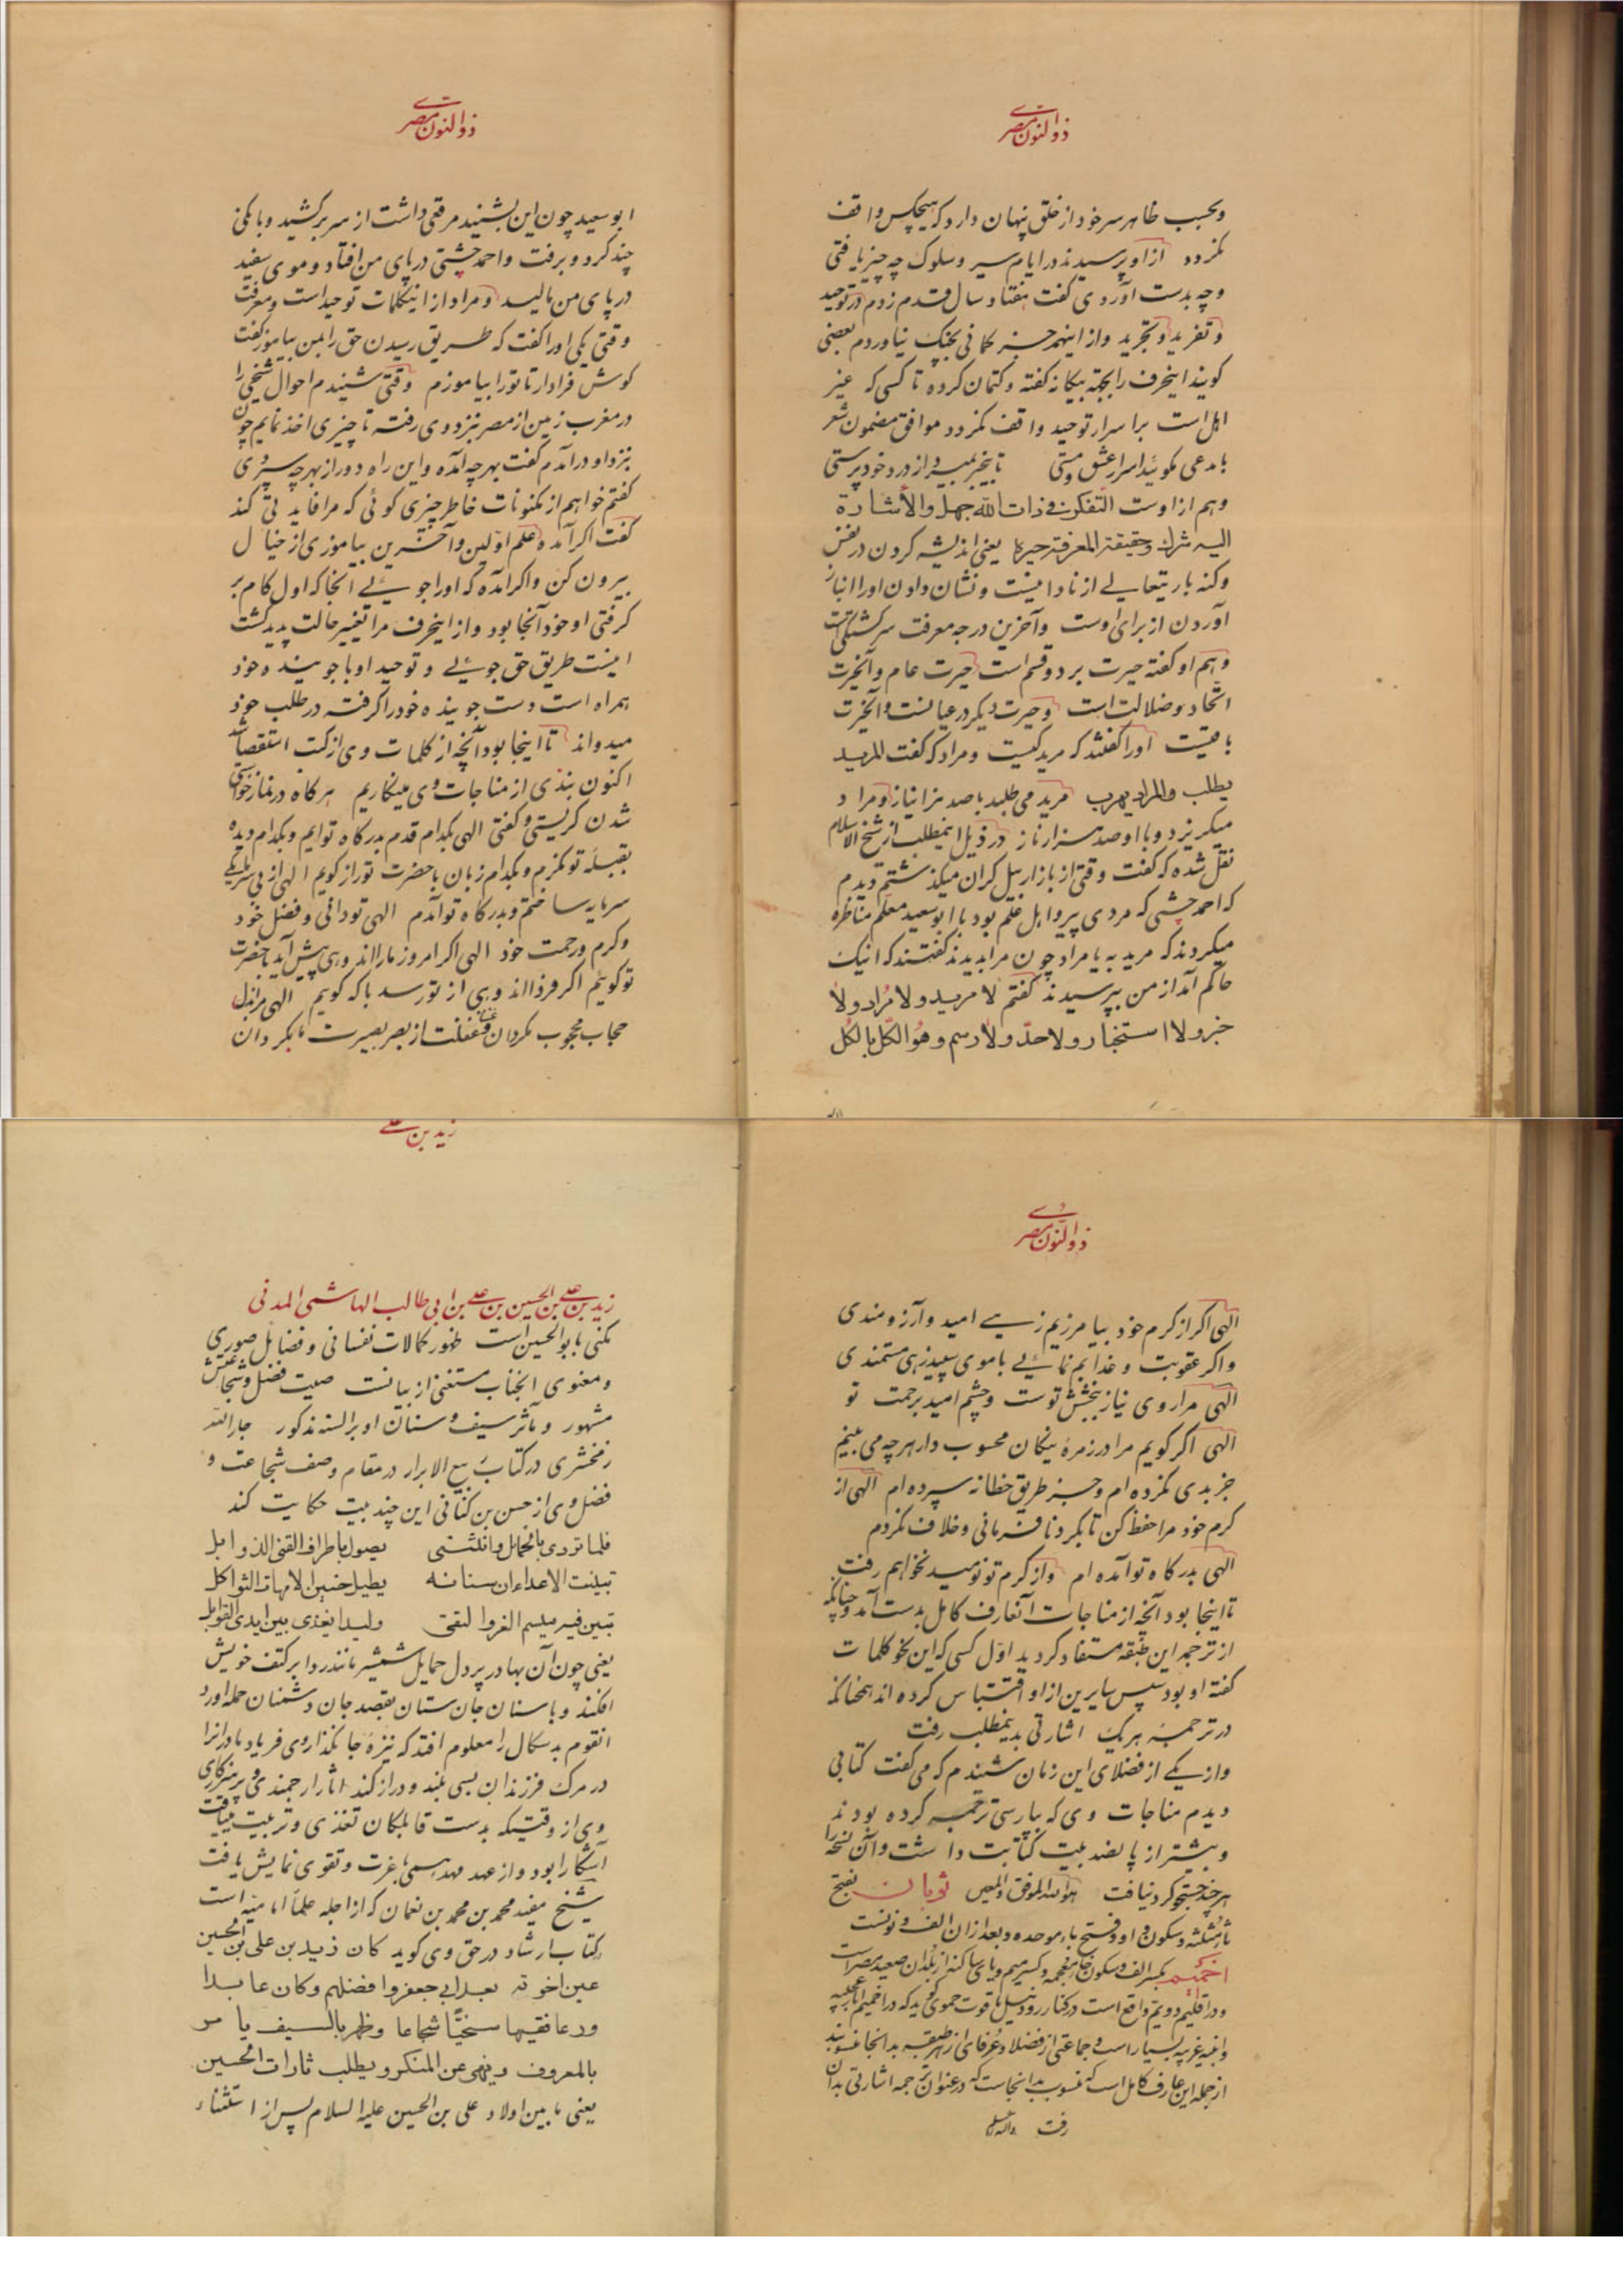 ذوالنون مصری
وبحسب ظاهر سر خود از خلق پنهان دارد که هیچکس واقف
نکردد از او پرسیدند در ایام سیر وسلوک چه چیز یافتی
وچه بدست آوردی گفت هفتاد سال قدم زدم در توحید
وتفرید وتجرید واز اینهمه جز کمانی بچنک نیاوردم بعضی
کویند اینحرف را بجهة بیکانه گفته وکتمان کرده تا کسی که غیر
اهل است بر اسرار توحید واقف نکردد موافق مضمون شعر
با مدعی مکوئید اسرار عشق ومستی تا بیخبر بمیرد از درد خودپرستی
وهم از اوست التفکر فی ذات الله جهل والأشارة
الیه شرک وحقیقة المعرفة حیرة یعنی اندیشه کردن در نفس
وکنه باریتعالی از نادانیست ونشان دادن او را انباز
آوردن از برای اوست وآخرین درجه معرفت سرکشتکی است
وهم او گفته حیرت بر دو قسم است حیرت عام وآنحیرت
الحاد وضلالت است وحیرت دیکر در عیانست وآنحیرت
یافتیست او را گفتند که مرید کیست ومراد که گفت المرید
یطلب والمراد یهرب مرید می طلبد با صد هزار نیاز ومراد
میکریزد وبا او صد هزار ناز در ذیل اینمطلب از شیخ الاسلام
نقل شده که گفت وقتی از بازار بیل کران میکذشتم دیدم
که احمد چشتی که مردی پیر واهل علم بود با ابوسعید معلم مناظره
میکردند که مرید به یا مراد چون مرا بدیدند گفتند که اینک
حاکم آمد از من بپرسیدند گفتم لا مرید ولا مراد ولا
خبر ولا استخبار ولا حد ولا رسم وهو الکل بالکل
ذوالنون مصری
ابوسعید چون این بشنید مرقعی داشت از سر برکشید وبانکی
چند کرد وبرفت واحمد چشتی در پای من افتاد وموی سفید
در پای من مالید ومراد از اینکلمات توحید است ومعرفت
وقتی یکی او را گفت که طریق رسیدن حق را بمن بیاموز گفت
کوش فرادار تا تو را بیاموزم وقتی شنیدم احوال شیخی را
در مغرب زمین از مصر بنزد وی رفته تا چیزی اخذ نمایم چون
بنزد او درآمدم گفت بهر چه آمده واین راه دور از بهر چه سپردی
گفتم خواهم از مکنونات خاطر چیزی کوئی که مرا فایدتی کند
گفت اکر آمده علم اولین وآخرین بیاموزی از خیال
بیرون کن واکر آمده که او را جوئی آنجا که اول کام بر
کرفتی او خود آنجا بود واز اینحرف مرا تغییر حالت پدید کشت
اینست طریق حق جوئی وتوحید او با جوینده خود
همراه است دست جوینده خود را کرفته در طلب خود
میدواند تا اینجا بود آنچه از کلمات وی از کتب استقصا شد
اکنون بنذی از مناجات وی مینکاریم هر کاه در نماز خواستی
شدن کریستی وگفتی الهی بکدام قدم بدرکاه تو آیم وبکدام دیده
بقبله تو نکرم وبکدام زبان با حضرت تو راز کویم الهی از بی سرمایکی
سرمایه ساختم وبدرکاه تو آمدم الهی تو دانی وفضل خود
وکرم ورحمت خود الهی اکر امروز ما را اندوهی پیش آید با حضرت
تو کوئیم اکر فردا اندوهی از تو رسد با که کویم الهی مرا بذل
حجاب محجوب مکردان وغشاء غفلت از بصر بصیرت ما بکردان
ذوالنون مصری
الهی اکر از کرم خود بیامرزیم زهی امید وآرزومندی
واکر عقوبت وعذابم نمائی با موی سپید زهی مستمندی
الهی مرا روی نیاز ببخشش توست وچشم امید برحمت تو
الهی اکر کویم مرا در زمره نیکان محسوب دار هر چه می بینم
جز بدی نکرده ام وجز طریق خطا نه سپرده ام الهی از
کرم خود مرا حفظ کن تا بکرد نافرمانی وخلاف نکردم
الهی بدرکاه تو آمده ام واز کرم تو نومید نخواهم رفت
تا اینجا بود آنچه از مناجات آنعارف کامل بدست آمد وچنانکه
از ترجمه این طبقه مستفاد کردید اول کسی که این نحو کلمات
گفته او بود سپس سایرین از او اقتباس کرده اند همچنانکه
در ترجمه هریک اشارتی بدینمطلب رفت
واز یکی از فضلای این زمان شنیدم که می گفت کتابی
دیدم مناجات وی که بپارسی ترجمه کرده بودند
وبیشتر از پانصد بیت کتابت داشت وآن نسخه را
هر چند جستجو کرد نیافت هو الله الموفق والمعین ثوبان بفتح
ثاء مثلثه وسکون واو وفتح باء موحده وبعد از ان الف ونونست
اخمیم بکسر الف وسکون خاء معجمه وکسر میم ویای ساکنه از بلدان صعید مصر است
ودر اقلیم دویم واقع است در کنار رود نیل یاقوت حموی کوید که در اخمیم آثار عجیبه
وابنیه غریبه بسیار است وجماعتی از فضلا وعرفای از هر طبقه بدانجا منسوبند
از جمله این عارف کامل است که منسوب بدانجاست که در عنوان ترجمه اشارتی بدان
رفت والسلام
زید بن علی
زید بن علی بن الحسین بن علی بن ابی طالب الهاشمی المدنی
مکنی بابو الحسین است ظهور کمالات نفسانی وفضایل صوری
ومعنوی آنجناب مستغنی از بیانست صیت فضل وشجاعتش
مشهور ومآثر سیف وسنان او بر السنه مذکور جارالله
زمخشری در کتاب ربیع الابرار در مقام وصف شجاعت و
فضل وی از حسن بن کنانی این چند بیت حکایت کند
فلما تردی بالحمایل وانثنی یصول باطراف القنی الذوابل
تبینت الاعداء ان سنانه یطیل حنین الامهات الثواکل
تبین فیه میسم العز والتقی ولیدا یغذی بین ایدی القوابل
یعنی چون آن بهادر پردل حمایل شمشیر مانند ردا بر کتف خویش
افکند وبا سنان جان ستان بقصد جان دشمنان حمله آورد
آنقوم بدسکال را معلوم افتد که نیزه جانکذار وی فریاد مادران را
در مرک فرزندان بسی بلند ودراز کند آثار ارجمندی وپرهیزکاری
وی از وقتیکه بدست قابلکان تغذی وتربیت مییافت
آشکارا بود واز عهد مهد بسی با عزت وتقوی نمایش یافت
شیخ مفید محمد بن محمد بن نعمان که از اجله علماء امامیه است
در کتاب ارشاد در حق وی کوید کان زید بن علی بن الحسین
عین اخوته بعد ابی جعفر وافضلهم وکان عابدا
ورعا فقیها سخیا شجاعا وظهر بالسیف یامر
بالمعروف وینهی عن المنکر ویطلب ثارات الحسین
یعنی مابین اولاد علی بن الحسین علیه السلام پس از استثناء